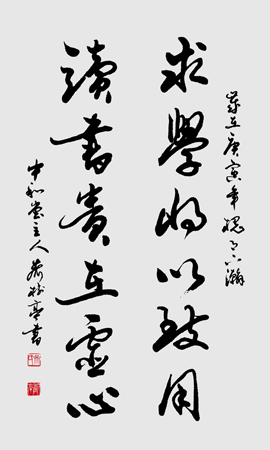 歲在庚寅年
求學將以致用
讀書貴在虛心
中和堂主人